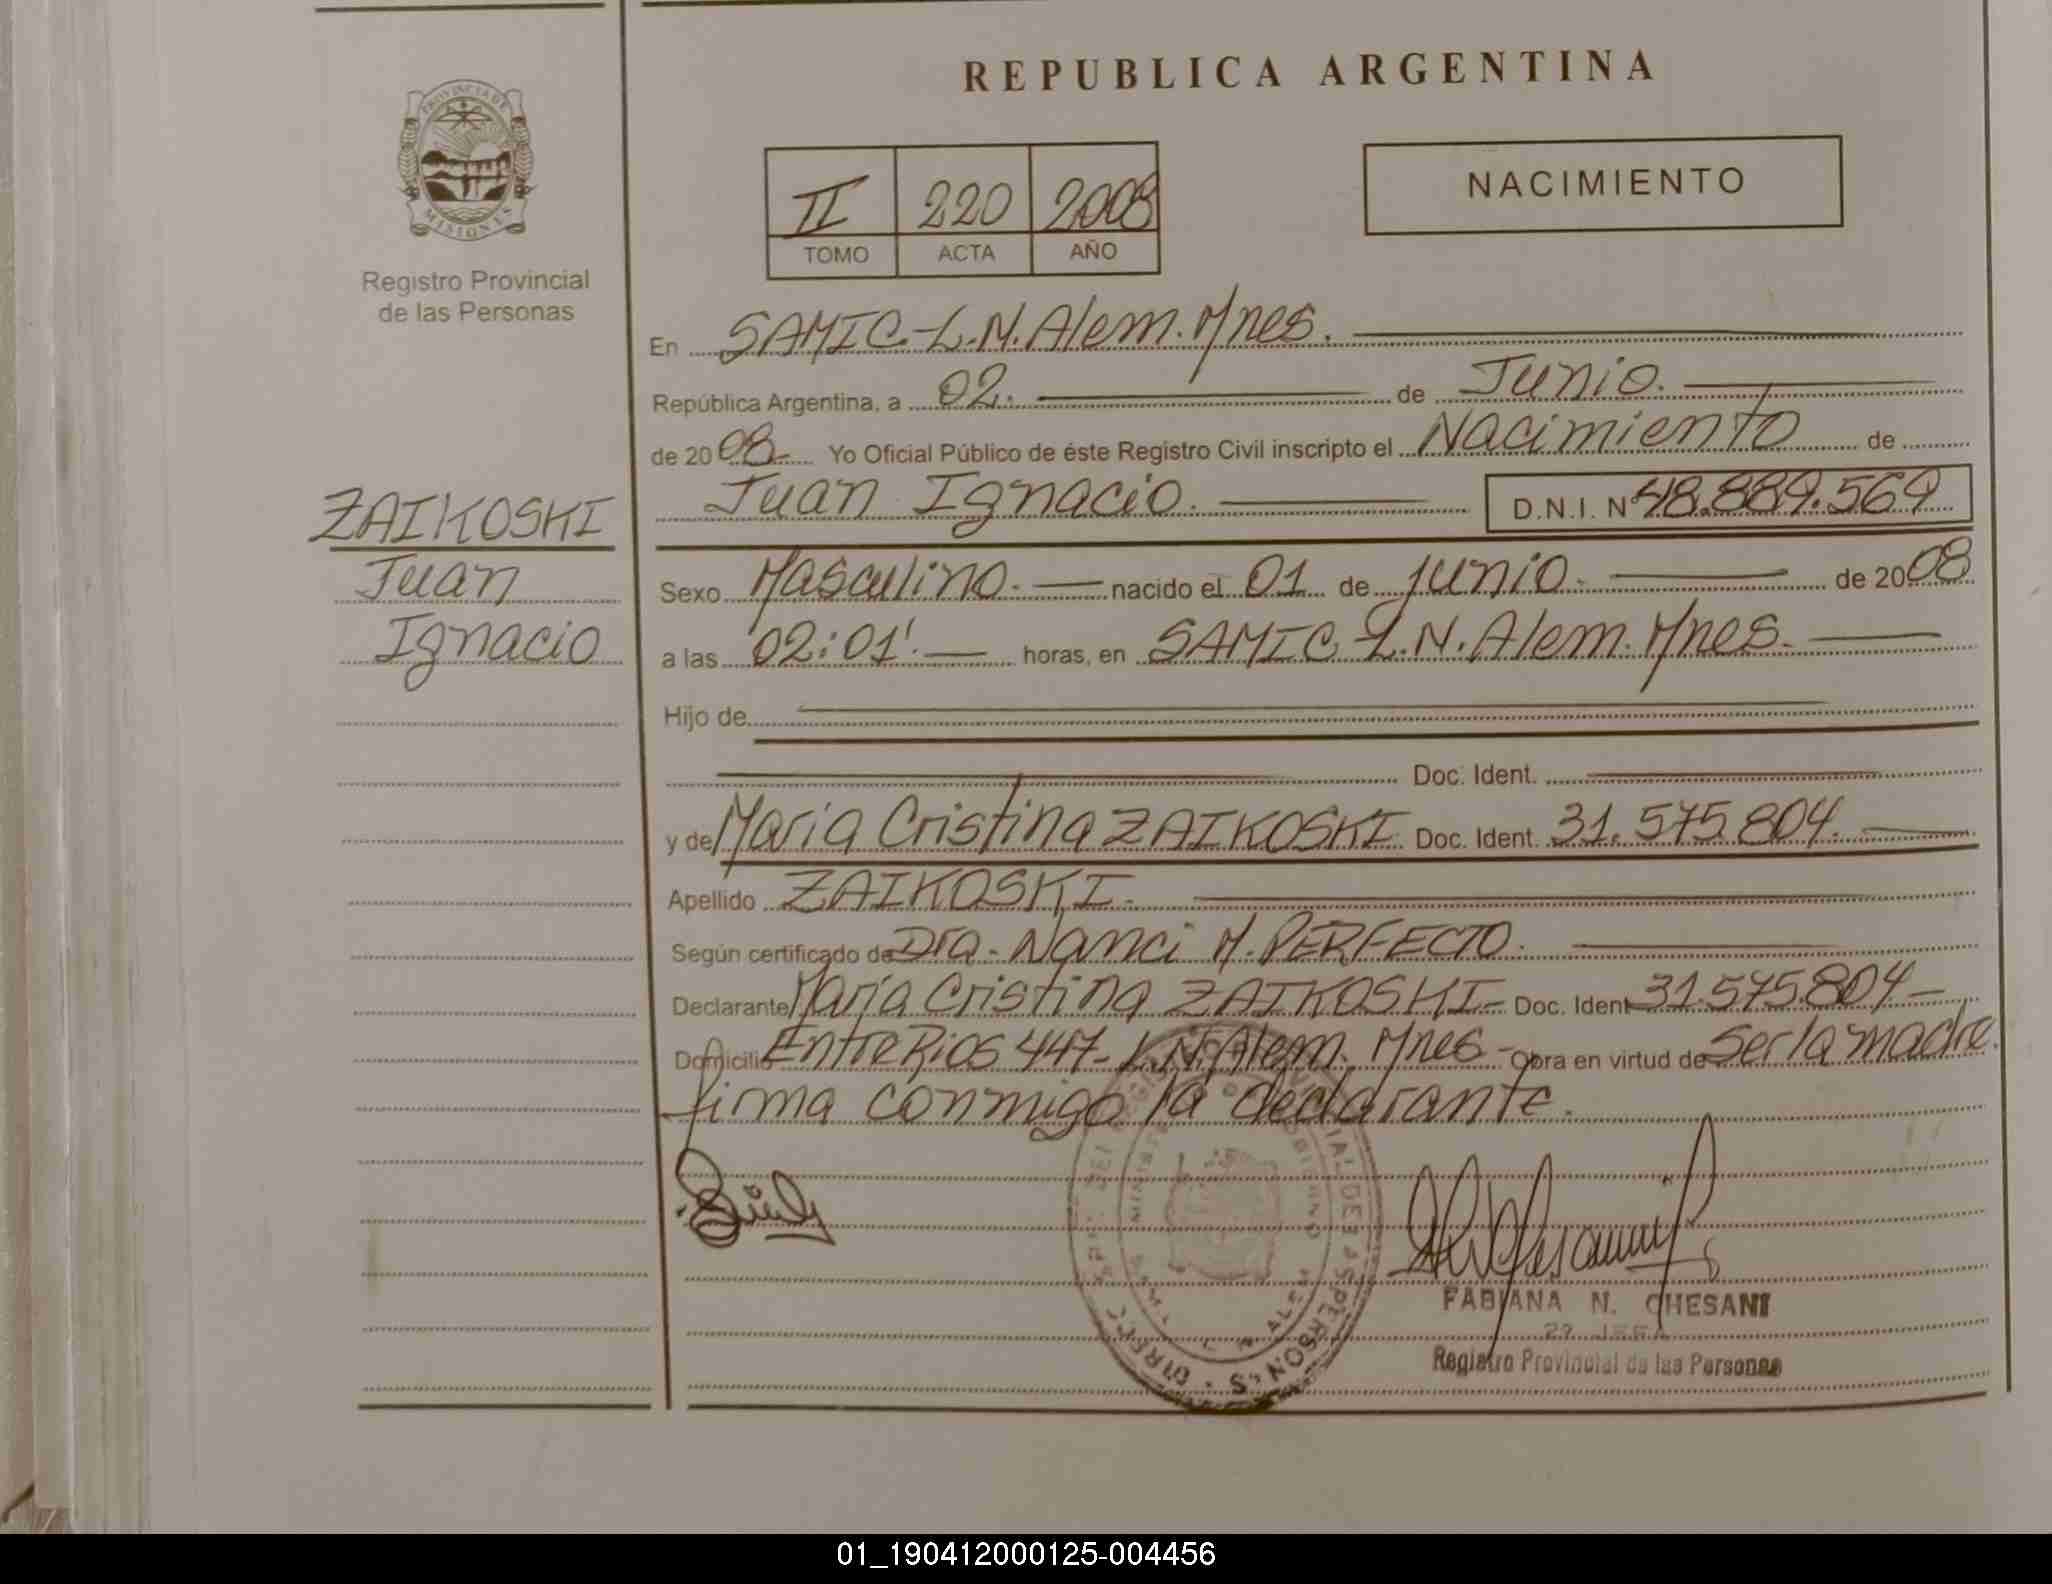 REPUBLICA ARGENTINA
PROVINCIA DE MISIONES
Registro Provincial
de las Personas
II 220 2008
TOMO ACTA AÑO
NACIMIENTO
En SAMIC-L.N.Alem.Mnes.
República Argentina, a 02. de Junio.
de 2008 Yo Oficial Público de éste Registro Civil inscripto el Nacimiento de
Juan Ignacio. D.N.I. N° 48.889.569
ZAIKOSKI
Juan
Ignacio
Sexo Masculino. nacido el 01 de junio. de 2008
a las 02:01'. horas, en SAMIC L.N.Alem.Mnes.
Hijo de
Doc. Ident.
y de María Cristina ZAIKOSKI Doc. Ident. 31.575.804.
Apellido ZAIKOSKI.
Según certificado de Dra. Nanci M. PERFECTO.
Declarante María Cristina ZAIKOSKI- Doc. Ident 31.575.804-
Domicilio Entre Rios 447- L.N.Alem. Mnes- Obra en virtud de Ser la madre.
firma conmigo la declarante.
FABIANA N. CHESANI
Registro Provincial de las Personas
01_190412000125-004456